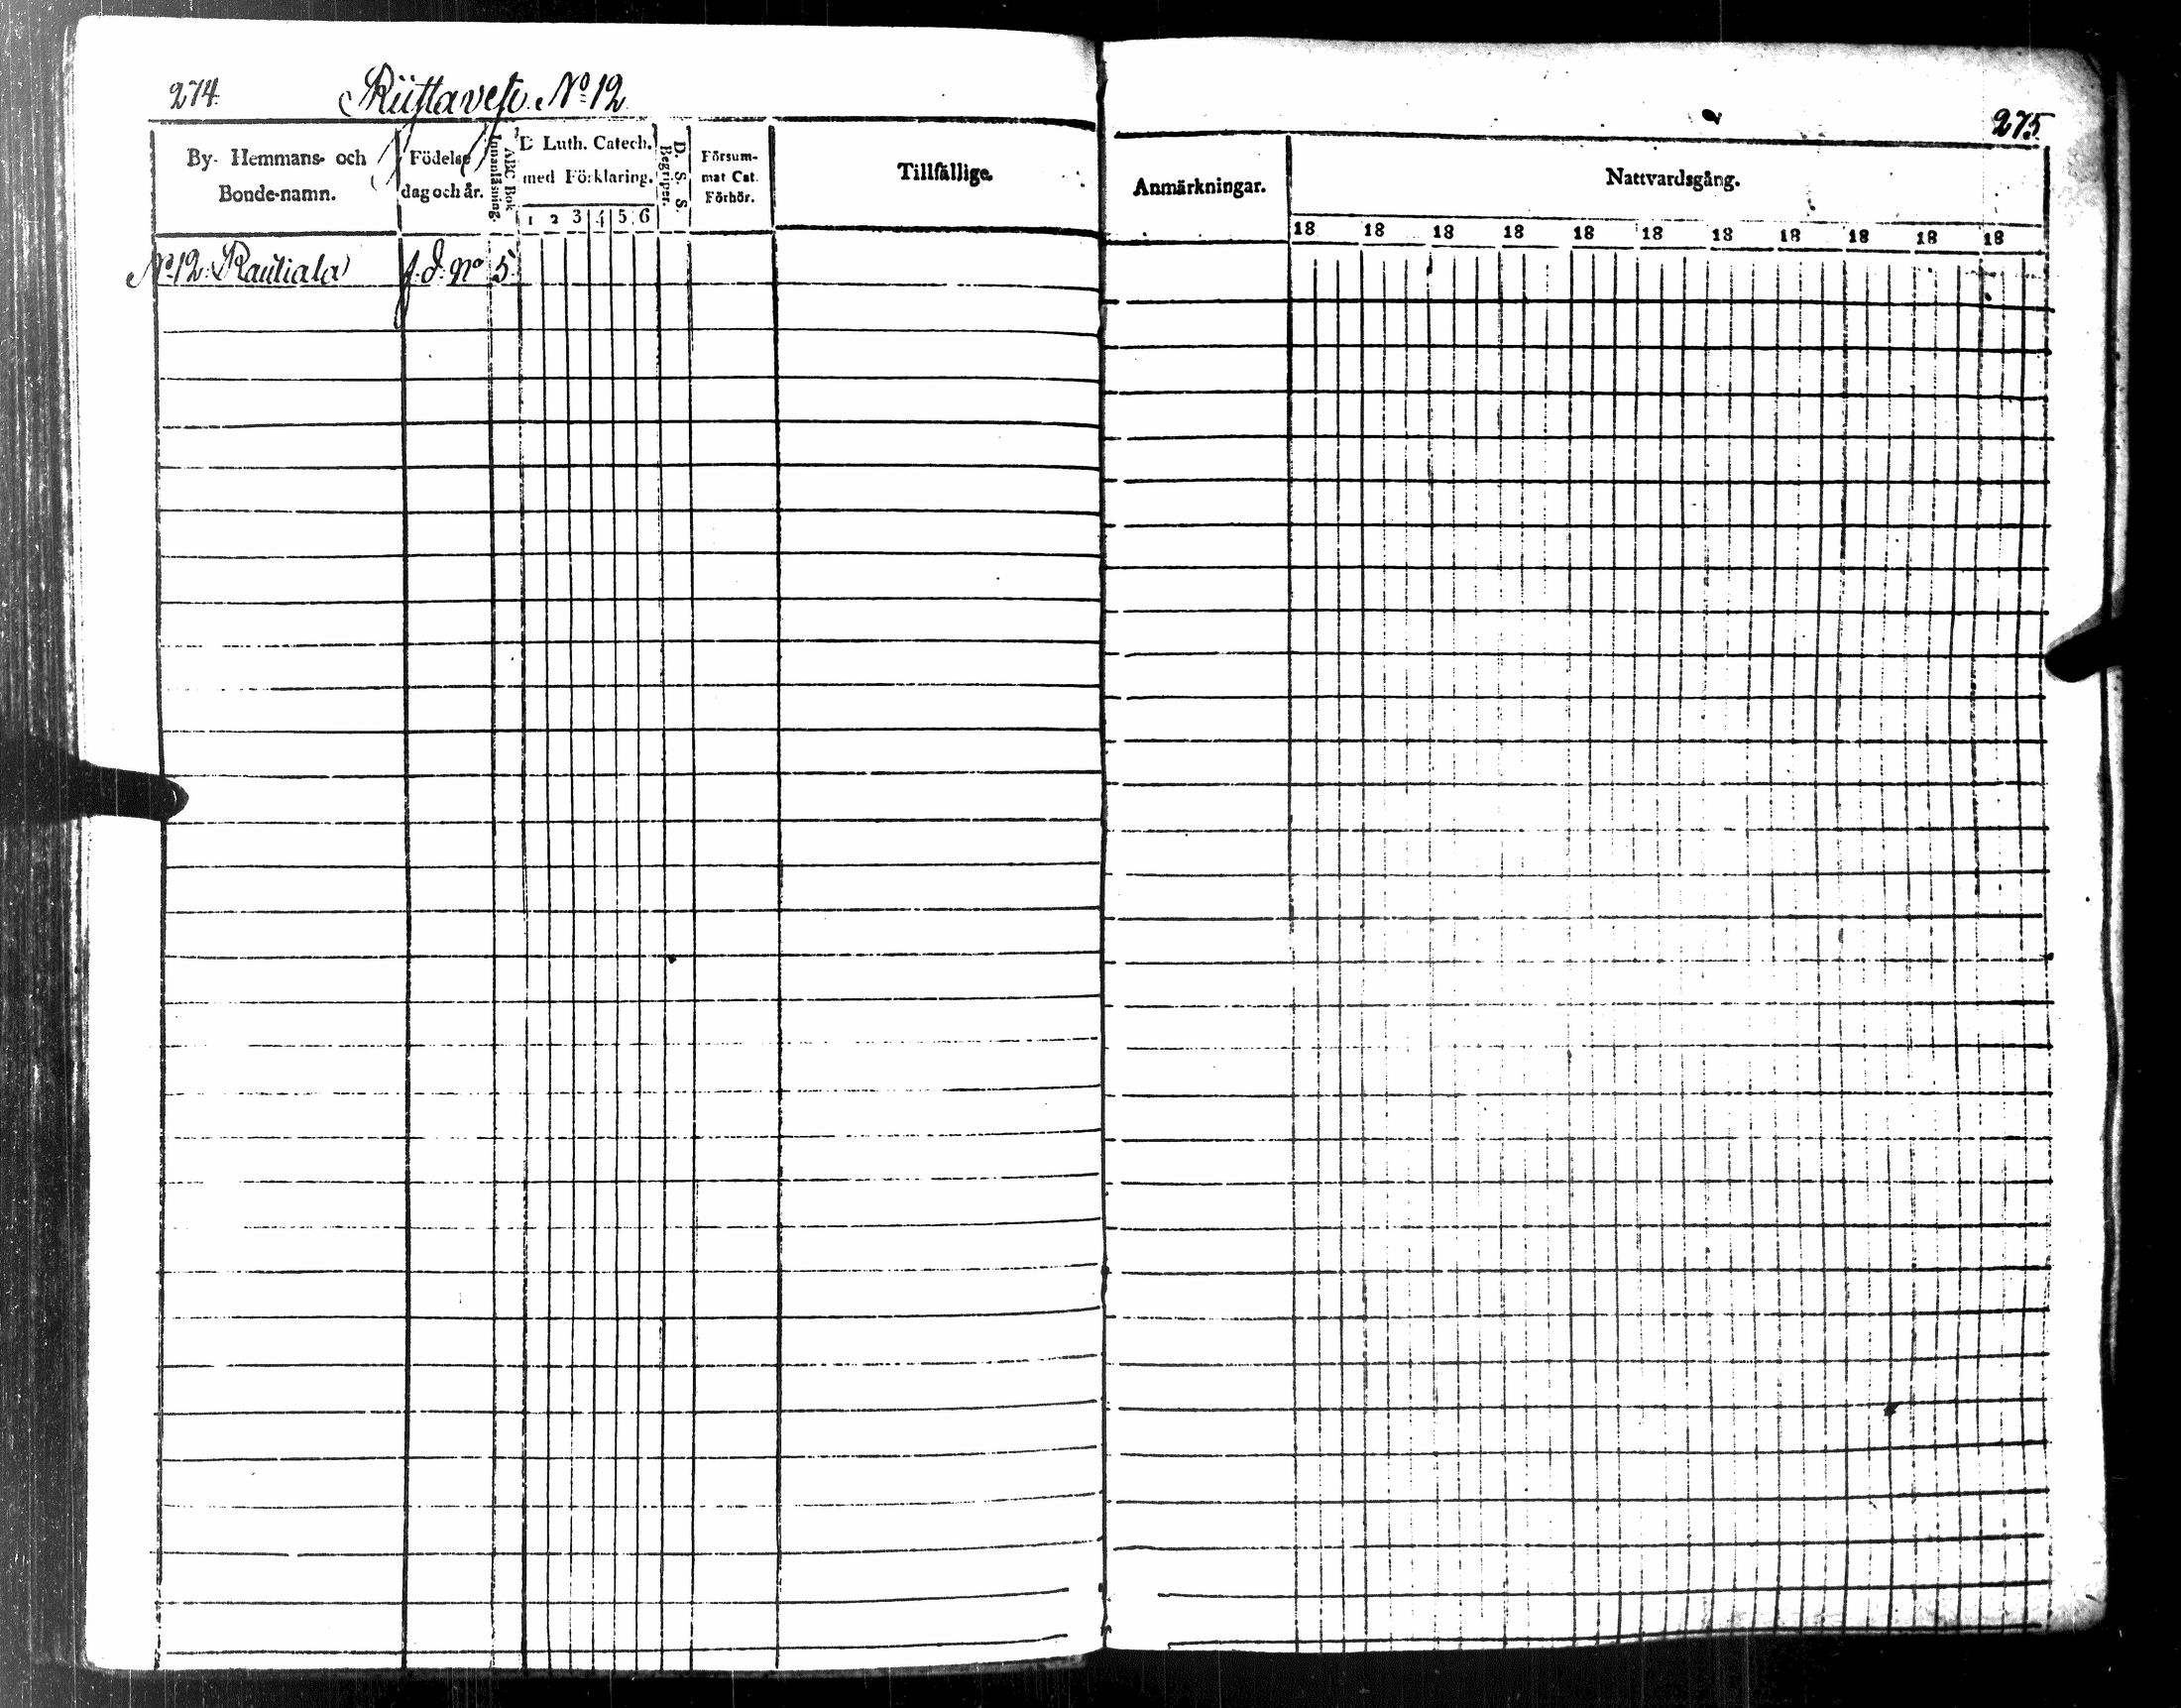 274. Riistavesi. No 12
275
By- Hemmans- och Bonde-namn.
Födelse dag och år.
Innanläsning.
ABC Bok
D. Luth. Catech. med Förklaring.
1 2 3 4 5 6
D. S. S.
Begriper.
Försum-
mat Cat.
Förhör.
Tillfällige.
Anmärkningar.
Nattvardsgång.
18 18 18 18 18 18 18 18 18 18 18
No 12. Rautiala f. d. No 5.